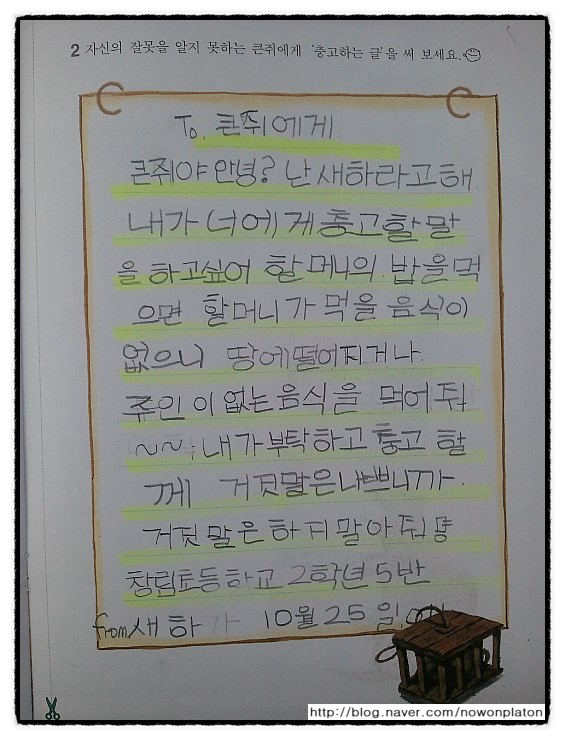 2 자신의 잘못을 알지 못하는 큰쥐에게 '충고하는 글'을 써 보세요.
To. 큰쥐에게
큰쥐야 안녕? 난 새하라고해
내가 너에게 충고할 말
을 하고싶어 할머니의 밥을먹
으면 할머니가 먹을 음식이
없으니 땅에떨어지거나.
쥬인이없는음식을 먹어줘
~~ 내가부탁하고 충고 할
께 거짓말은나쁘니까.
거짓말은하지말아줘
창림초등학교 2학년 5반
from 새하가 10월 25일
http://blog.naver.com/nowonplaton